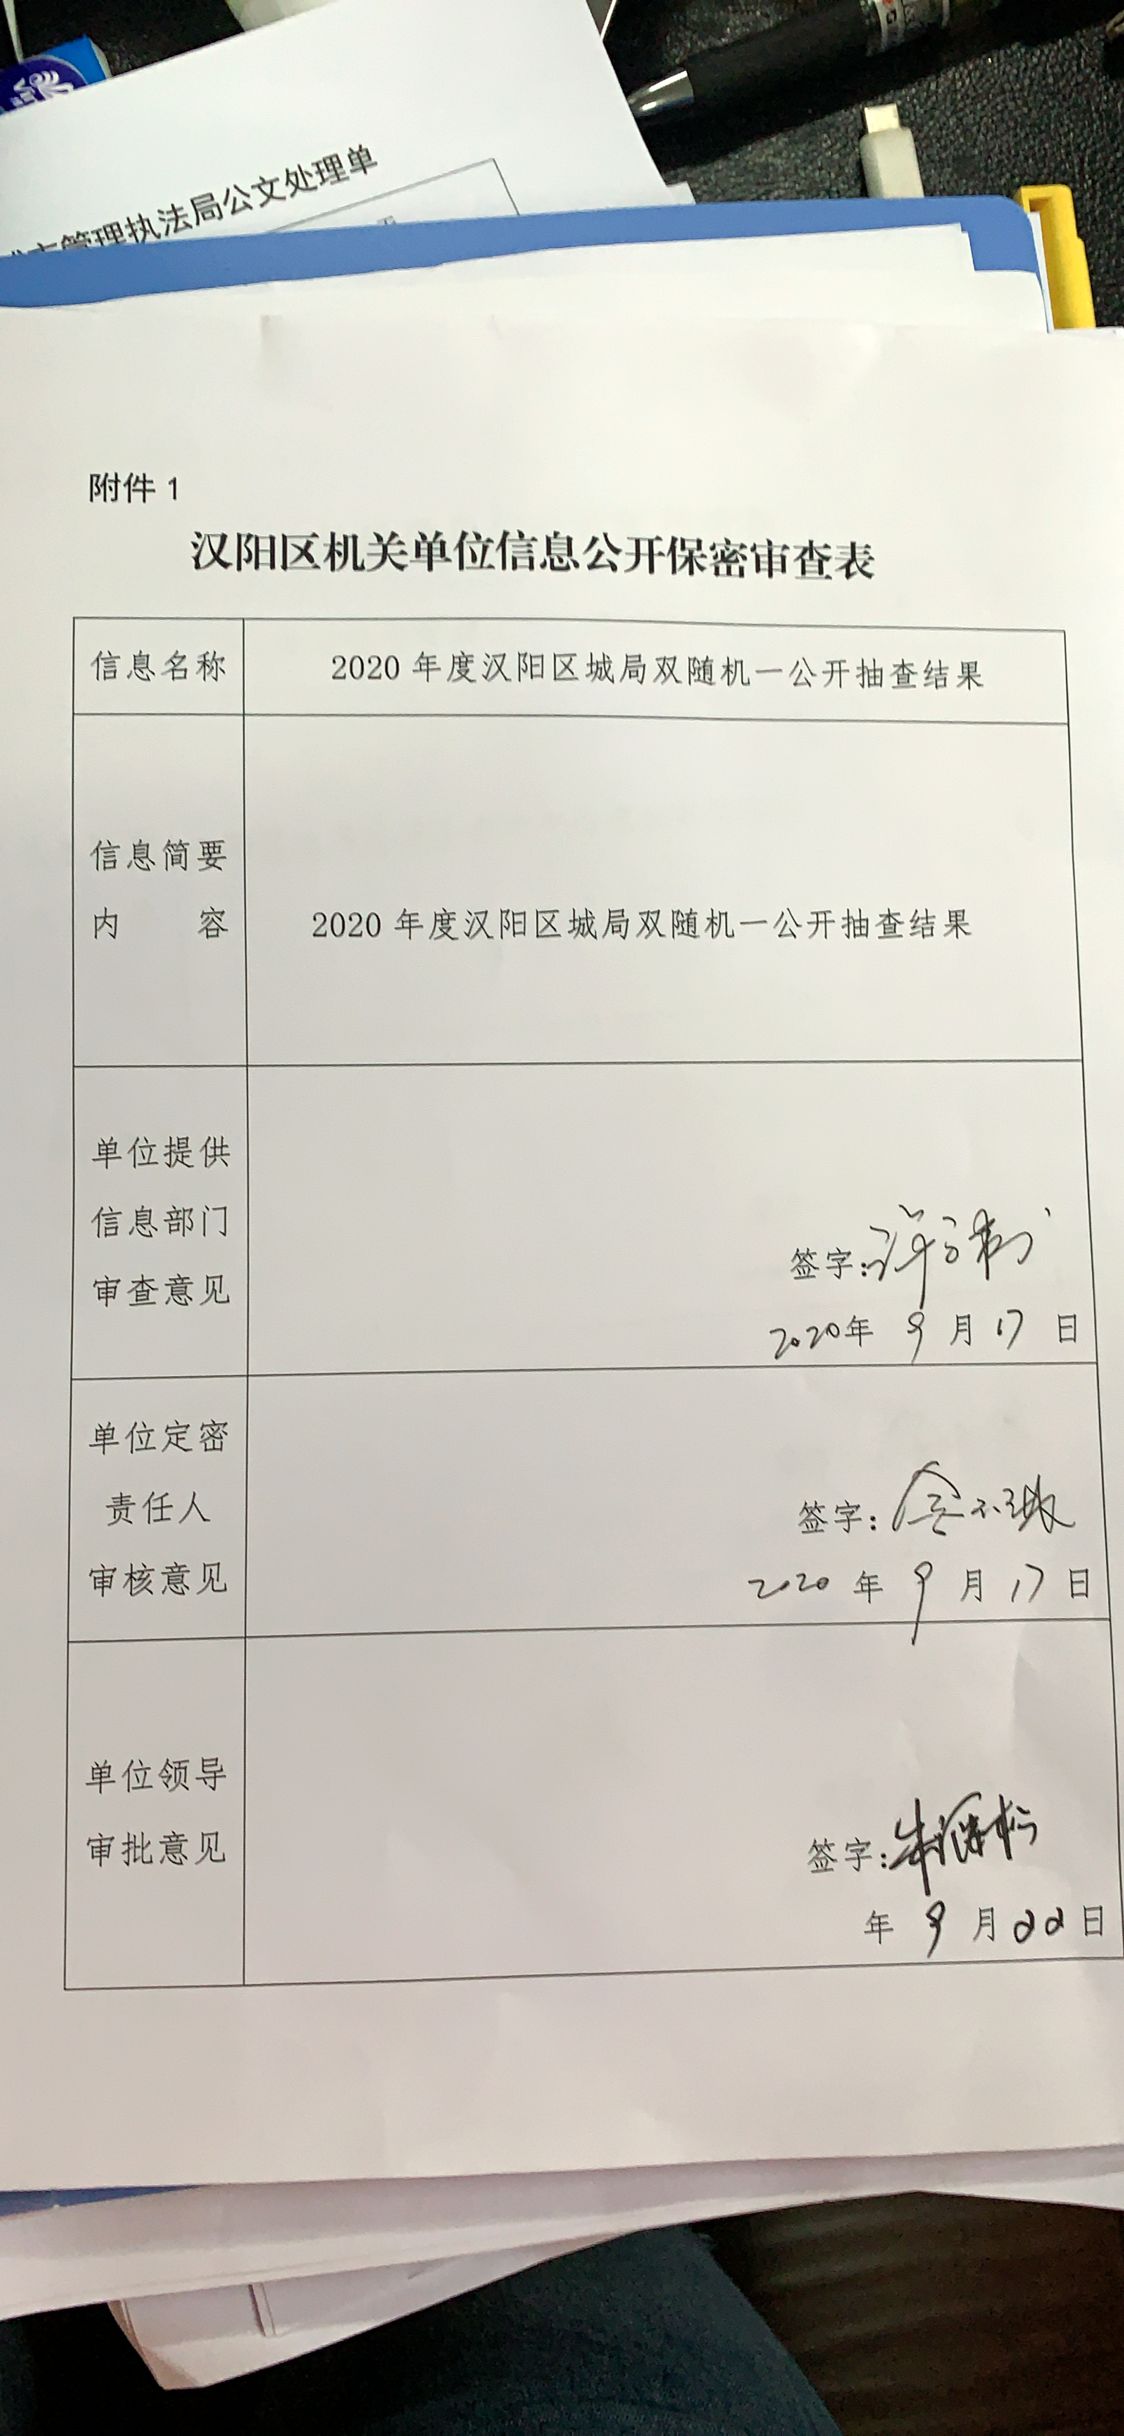 管理执法局公文处理单
附件 1
汉阳区机关单位信息公开保密审查表
信息名称
2020 年度汉阳区城局双随机一公开抽查结果
信息简要
内 容
2020 年度汉阳区城局双随机一公开抽查结果
单位提供
信息部门
审查意见
签字：
2020年 9 月 17 日
单位定密
责任人
审核意见
签字：
2020 年 9 月 17 日
单位领导
审批意见
签字：
年 9 月 22 日